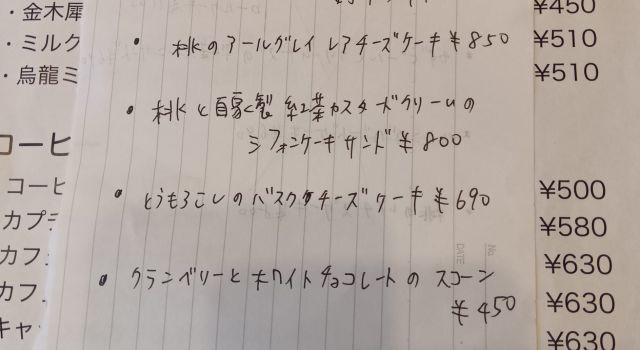 ・金木犀
・ミルク
・烏龍ミ
コーヒ
コーヒ
カプチ
カフェ
カフ
キャ
・桃のアールグレイ レアチーズケーキ ¥850
・桃と自家製 紅茶カスタードクリームの
シフォンケーキサンド ¥800
・とうもろこしのバスクチーズケーキ ¥690
・クランベリーとホワイトチョコレートのスコーン
¥450
No.
DATE
¥450
¥510
¥510
¥500
¥580
¥630
¥630
¥630